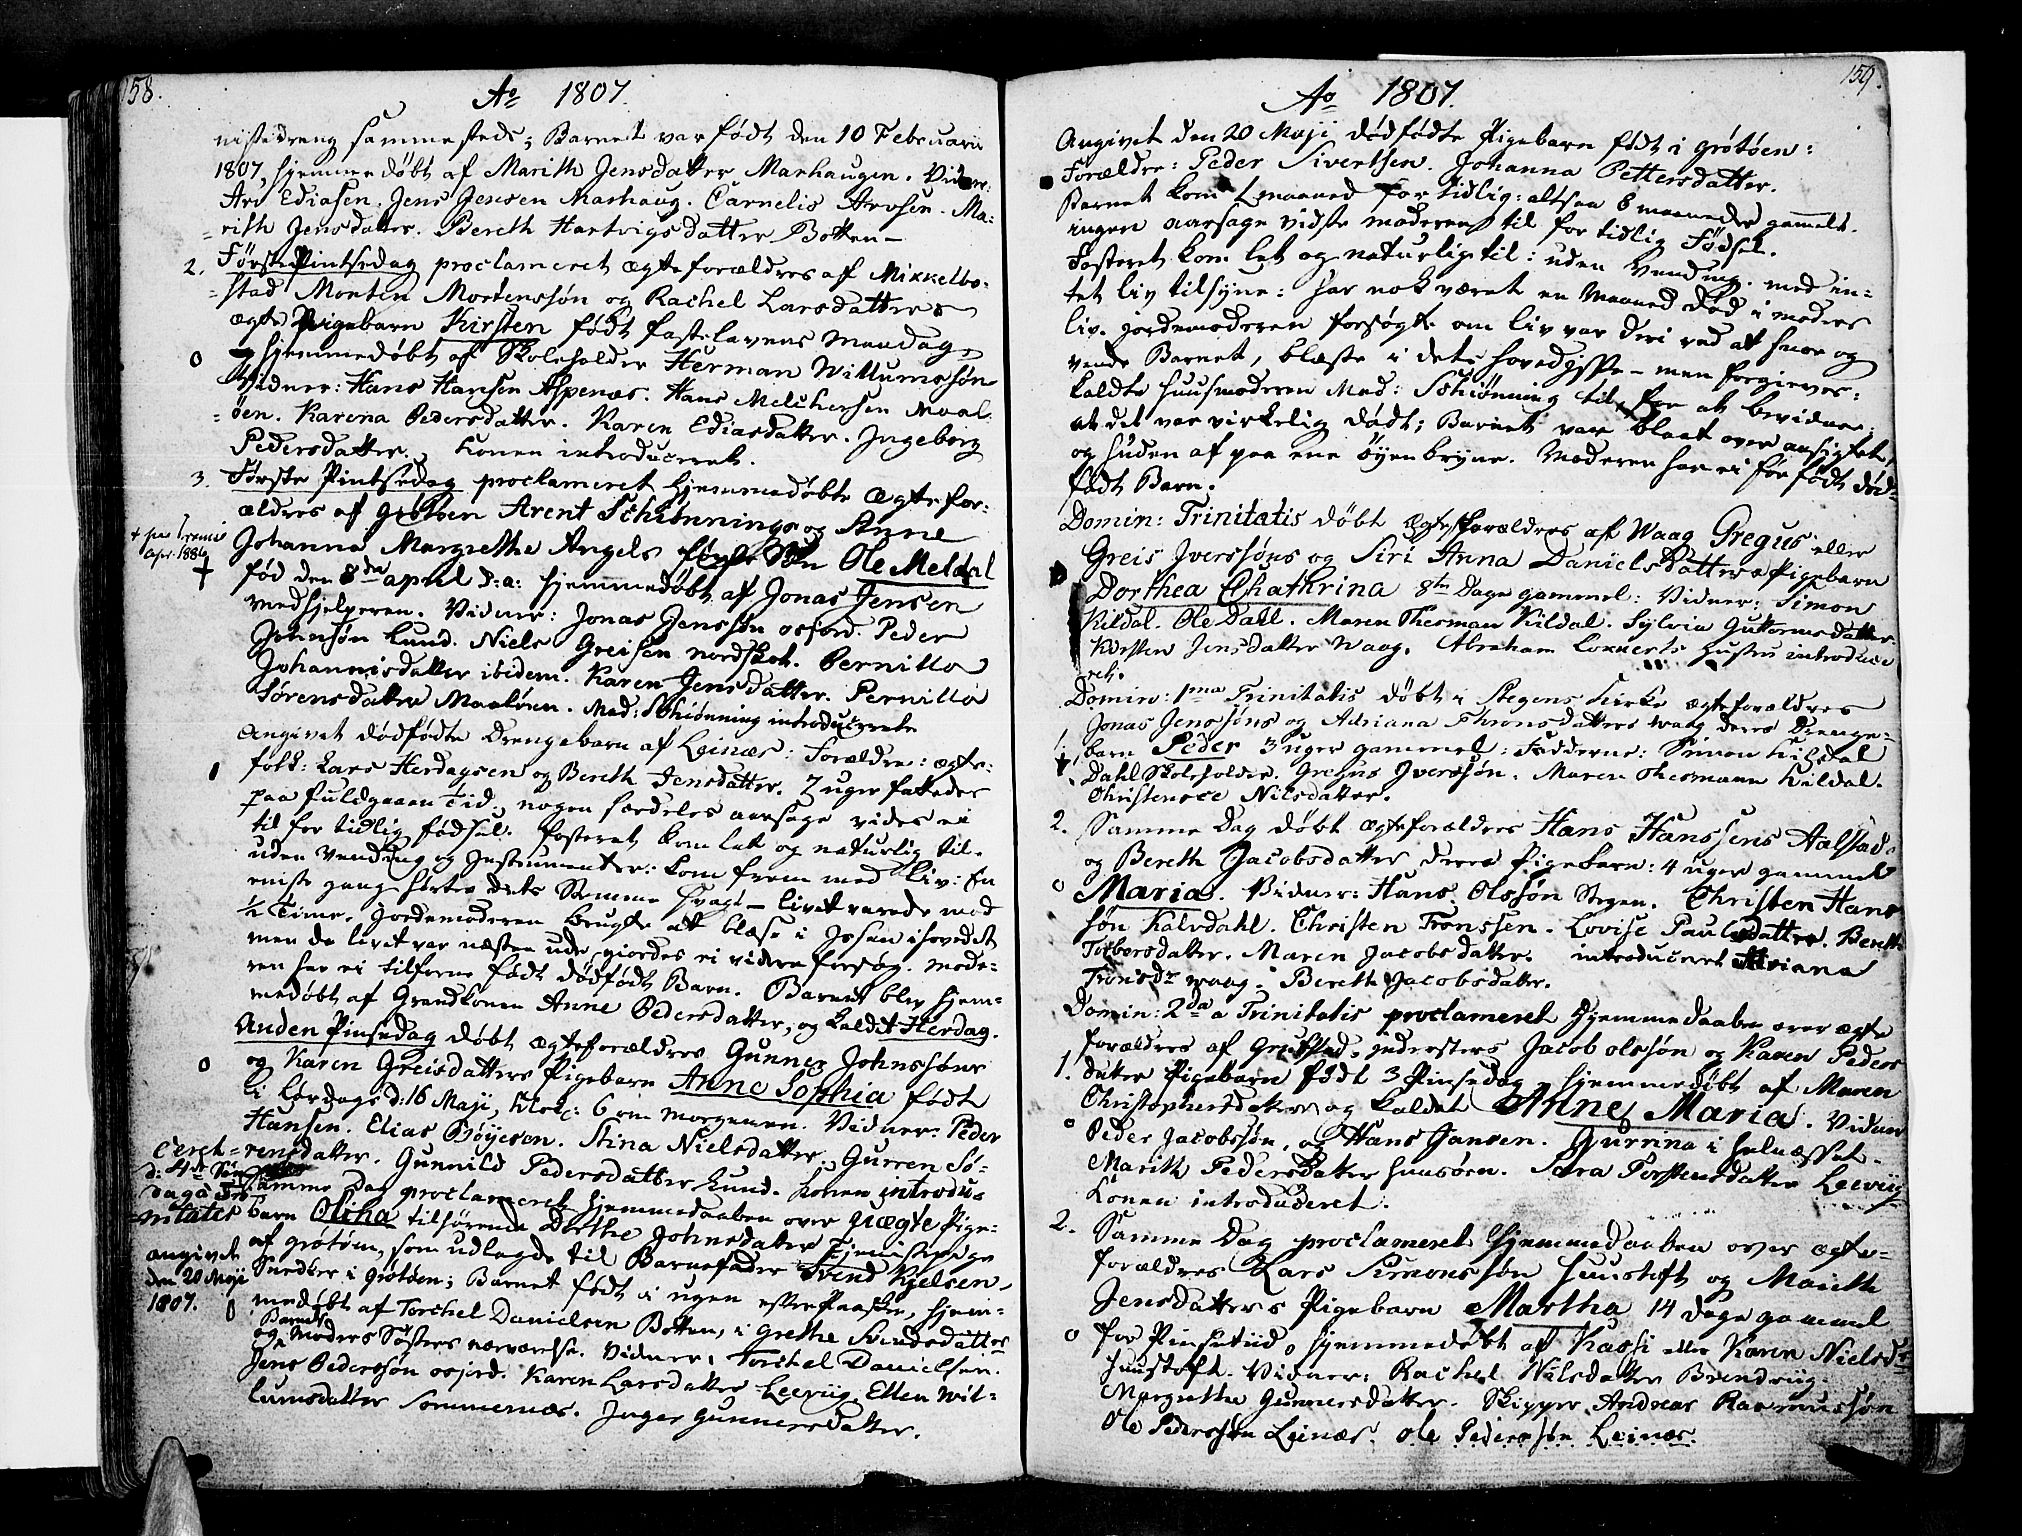 158.
Ao 1807.
nistedreng sammesteds; Barnet var födt den 10 Februarii
1807, hjemmedöbt af Marith Jensdatter Marhaugen. Vidner:
Ars Ediasen. Jens Jensen Marhaug. Carnelis Arvsen. Ma-
rith Jensdatter. Bereth Hartvigsdatter Botten-
2. Første Pintsedag proclameret ægteforældres af Mikkelbo-
stad Morten Mortenssøn og Rachel Larsdatters
ægte Pigebarn Kirsten födt fastelavens Mandag,
0 hjemmedöbt af Skoleholder Herman Willumssøn
Vidner: Hans Hansen Aspenæs. Hans Melchersen Maal-
öen. Karena Pedersdatter. Karen Ediasdatter. Ingeborg
Pedersdatter. Konen introduceret.
3. Første Pintsedag proclameret hjemmedöbte ægtefor-
ældres af Grötöen Arent Schiønnings og Anne
Johanna Margrethe Angels Søn Ole Meldal
+ apr. 1886
föd den 8de april d: a: hjemmedöbt af Jonas Jensen
medhjelperen. Vidner: Jonas Jenssøn osjord. Peder
Johnsøn Lund. Niels Greisen nordskot. Pernilla
Johannisdatter ibidem. Karen Jensdatter. Pernilla
Sørensdatter Maalöen. Mad: Schiønning introduceret
Angivet dödfödte Drengebarn af Leinæs: Forældre: ægte-
folk: Lars Herdagsen og Bereth Jensdatter. 7 uger fattedes
paa fuldgaaen Tid, nogen særdeles aarsage vides ei
til for tidlig födsel. Fosteret kom let og naturlig til.
uden Vending og Instrumenter: kom frem med Liv: En
eniste gang hörtes dets Stemme svagt - livet varede med
1/2 Time. Jordemoderen brugte at blæse i Issen i hovedet
men da livet var næsten ude, giordes ei videre forsøg. Mode-
ren har ei tilforne födt dödfödt Barn. Barnet blev hjem-
medöbt af Grandkonen Anne Pedersdatter, og kaldet Herdag.
Anden Pinsedag döbt ægteforældres Gunner Johnssøns
0 og Karen Greisdatters Pigebarn Anne Sophia födt
Lördags d: 16 Maji, Klok: 6 om Morgenen. Vidner: Peder
Hansen. Elias Böyesen. Stina Nielsdatter. Gurren Sö-
rensdatter. Gunnild Pedersdatter Lund. Konen introdu-
ceret
d: 4de Søn
dag a Tri
nitatis
Samme Dag proclameret hjemmedaaben over uægte Pige-
barn Olina tilhörende Dorthe Johnsdatter Tjenistepige
af grötöen, som udlagde til Barnefader Svend Kjelsen
Snedker i Grötöen; Barnet födt i ugen efter Paaske, hjem-
angivet
den 20 Maji
1807. 0
medöbt af Torchel Danielsen Botten, i Grethe Svendsdatter
Barnets
og Moders Søsters nærværelse. Vidner: Torchel Danielsen.
Jens Pederssøn osjord. Karen Larsdatter Leeviig. Ellen Wil-
lumsdatter Sommernæs. Inger Gunnersdatter.
159.
Ao 1807.
Angivet den 20 Maji dödfödte Pigebarn födt i grötöen:
Forældre: Peder Sivertsen. Johanna Pettersdatter.
Barnet kom 1 maaned for tidlig: altsaa 8 maaneder gammelt.
ingen aarsage vidste moderen til for tidlig Födsel.
Fosteret kom let og naturlig til: uden Vending. med in-
tet liv tilsyne: har nok været en Maaned död i moders
liv. Jordemoderen forsögte om liv var deri ved at snoe og
vende Barnet, blæste i dets hovedisse - men forgieves:
kaldte huusmoderen Mad: Schiønning til, for at bevidne:
at det var virkelig dödt; Barnet var blaat over ansigtet,
og huden af paa ene öyenbryne. Moderen har ei för födt död-
födt Barn.
Domin: Trinitatis döbt Ægteforældres af Waag Gregus eller
Greis Iverssøns og Siri Anna Danielsdatters Pigebarn
Dorthea Chathrina 8te Dage gammel: Vidner: Simon
Kildal. Ole Dahl. Maren Therman Kildal. Sylvia Guttormsdatter
Kirsten Jensdatter Waag. Abraham Lokkerts hustru introduce
ret.
Domin: 1ma Trinitatis döbt i Stegens Kirke ægteforældres
1. Jonas Jenssøns og Adriana Thronsdatters waag deres Drenge-
barn Peder 3 uger gammel: Fadderne: Simon Kildal
+. Dahl Skoleholder. Gregus Iverssøn. Maren Thermann Kildal.
Christense Nilsdatter.
2. Samme Dag döbt ægteforældres Hans Hanssens Aalstad
og Bereth Jacobsdatter deres Pigebarn: 4 uger gammel
0 Maria. Vidner: Hans Olssøn Stegen. Christen Hans
søn Kalvdahl. Christen Tronssen. Lovise Paulsdatter. Bereth
Torborsdatter. Maren Jacobsdatter. introduceret Adriana
Tronsdr waag: Bereth Jacobsdatter.
Domin: 2da a Trinitatis proclameret Hjemmedaaben over ægte
forældres af Grutstad, inderster Jacob olssøn og Karen Peders
1. datter Pigebarn födt 3 Pinsedag hjemmedöbt af Maren
Christophersdatter og kaldet Anne Maria. Vidner
0 Peder Jacobssøn, og Hans Jansen. Gurrina i helnæsset.
Marith Pedersdatter huusöen. Sara Torstensdatter Leeviig
Konen introduceret.
2. Samme Dag proclameret hjemmedaaben over ægte-
forældres Lars Simonssøn huustoft og Marith
Jensdatters Pigebarn Martha 14 dage gammel
0 for Pinsetiid, hjemmedöbt af Kassi eller Karen Nielsdr
huustoft. Vidner: Rachel Nilsdatter Brendviig.
Margrethe Gunnersdatter. Skipper Andreas Rasmussøn
Ole Pederssøn Leinæs. Ole Pederssøn Leinæs.